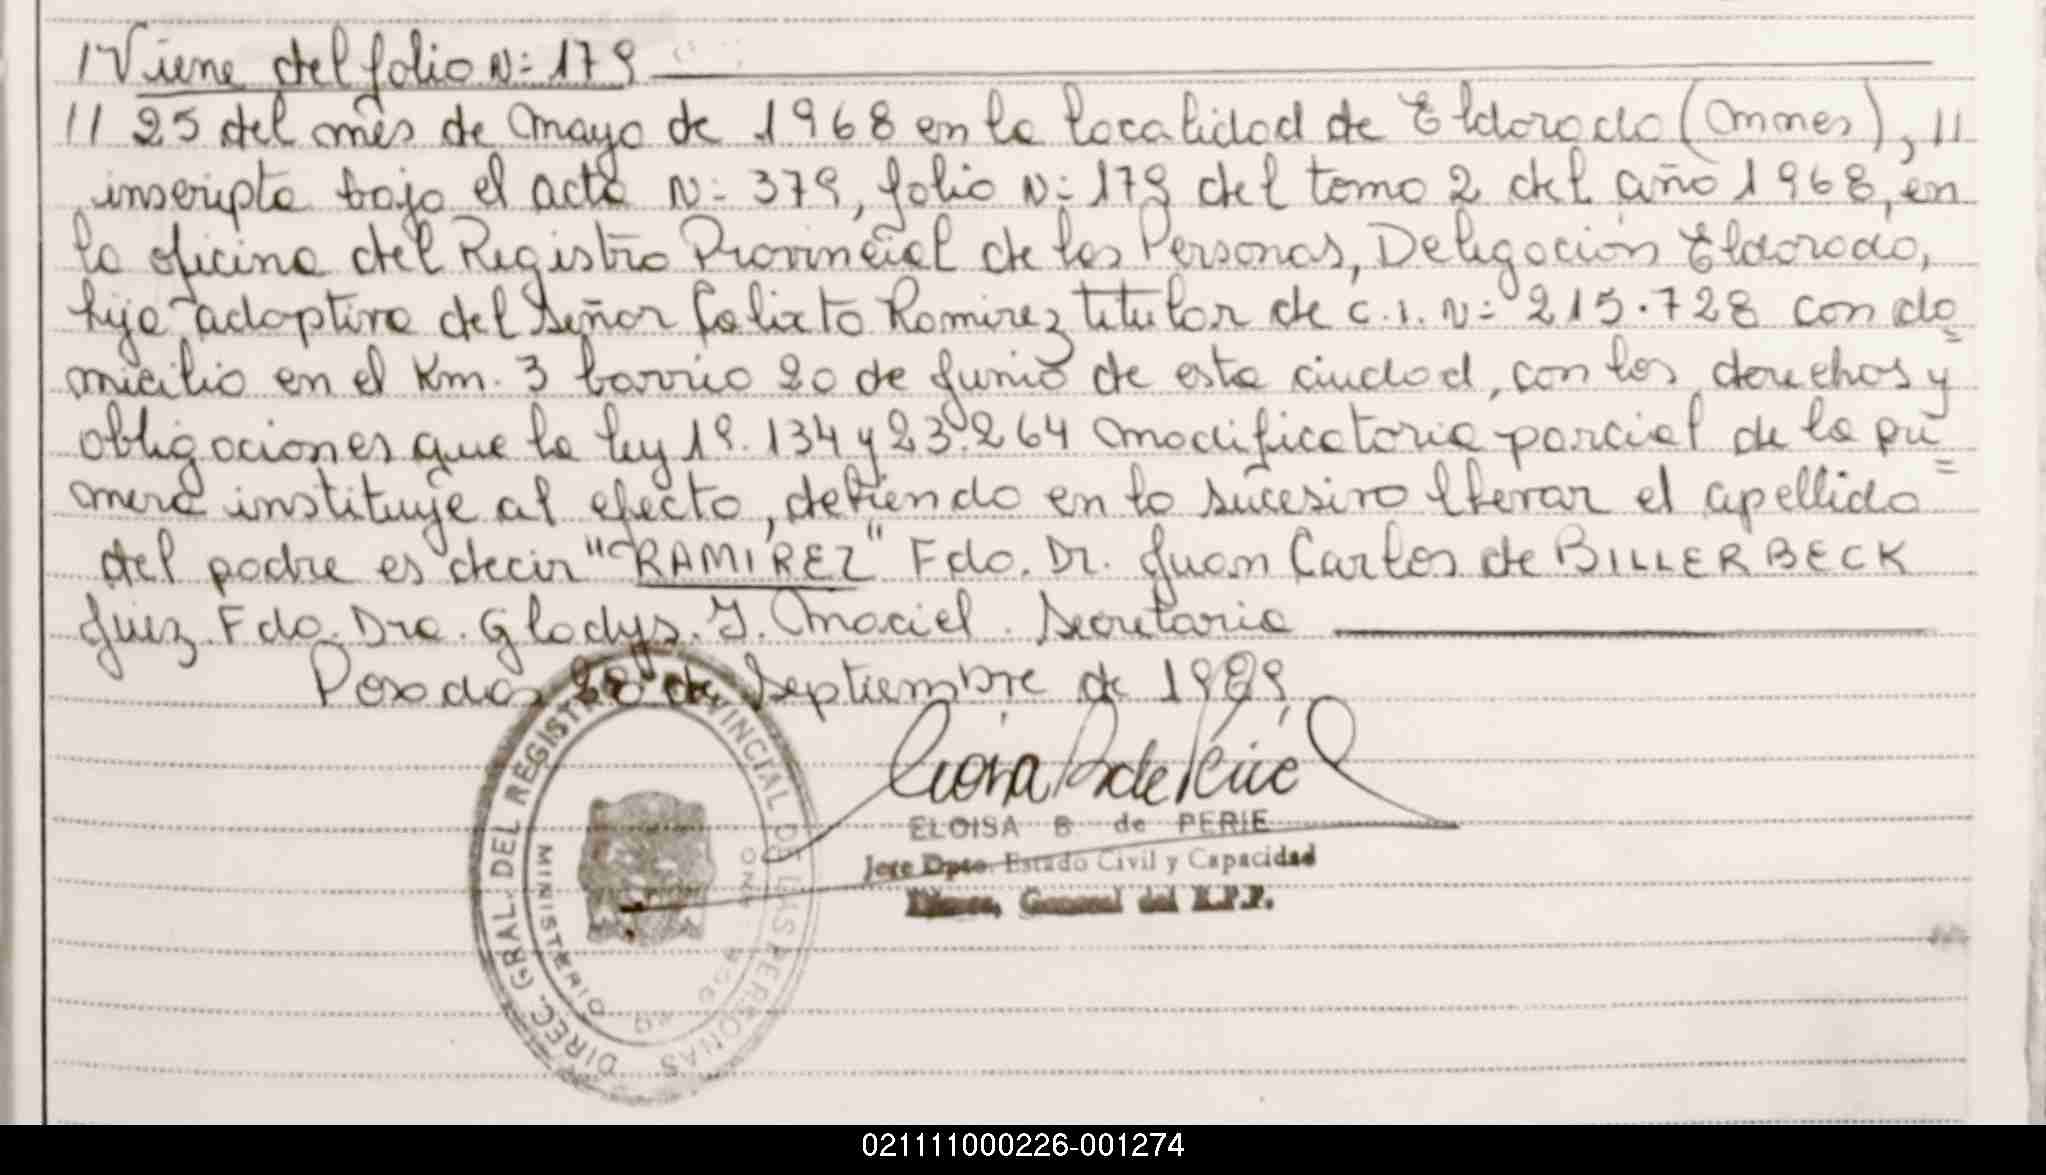 /Viene del folio N= 179
// 25 del mes de mayo de 1968 en la localidad de Eldorado (Mnes), //
inscripta bajo el acta N= 379, folio N= 179 del tomo 2 del año 1968, en
la oficina del Registro Provincial de las Personas, Delegación Eldorado,
hija adoptiva del Señor Calixto Ramirez titular de C.I. N= 215.728 con do=
micilio en el Km. 3 barrio 20 de Junio de esta ciudad, con los derechos y
obligaciones que la ley 19.134 y 23.264 modificatoria parcial de la pri=
mera instituye al efecto, debiendo en lo sucesivo llevar el apellido
del padre es decir "RAMIREZ" Fdo. Dr. Juan Carlos de BILLERBECK
Juez. Fdo. Dra. Gladys. I. Maciel. Secretaria
Posadas 28 de Septiembre de 1989
ELOISA B de PERIE
Jefe Dpto. Estado Civil y Capacidad
Direcc. General del R.P.P.
DIREC. GRAL. DEL REGISTRO PROVINCIAL DE LAS PERSONAS
MINISTERIO
021111000226-001274